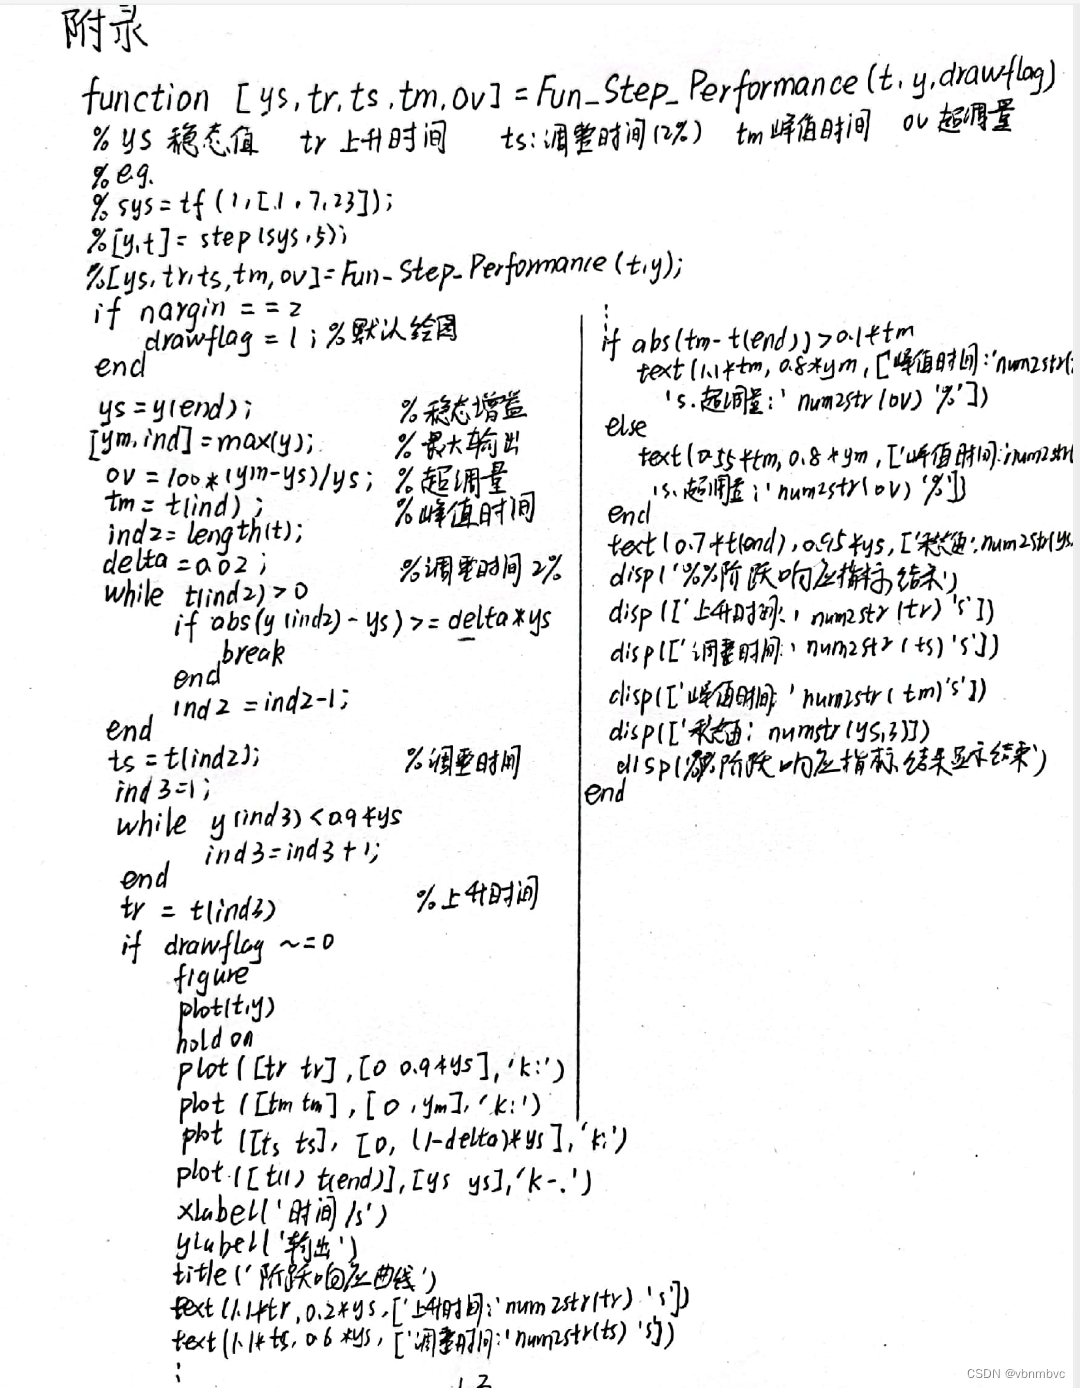 附录
function [ys,tr,ts,tm,ov]=Fun_Step_Performance(t,y,drawflag)
% ys 稳态值 tr 上升时间 ts:调整时间(2%) tm 峰值时间 ov 超调量
% e.g.
% sys=tf(1,[.1,7,23]);
%[y,t]= step(sys,5);
%[ys,tr,ts,tm,ov]=Fun_Step_Performance(t,y);
if nargin == 2
drawflag = 1; %默认绘图
end
ys =y(end); %稳态增益
[ym,ind]=max(y); %最大输出
ov=100*(ym-ys)/ys; %超调量
tm = t(ind); %峰值时间
ind2= length(t);
delta =0.02; %调整时间 2%
while t(ind2)>0
if abs(y(ind2)-ys)>=delta*ys
break
end
ind2=ind2-1;
end
ts=t(ind2); %调整时间
ind3=1;
while y(ind3)<0.9*ys
ind3=ind3+1;
end
tr = t(ind3) %上升时间
if drawflag ~=0
figure
plot(t,y)
hold on
plot([tr tr],[0 0.9*ys],'k:')
plot([tm tm],[0,ym],'k:')
plot([ts ts],[0,(1-delta)*ys],'k:')
plot([t(1) t(end)],[ys ys],'k-.')
xlabel('时间/s')
ylabel('输出')
title('阶跃响应曲线')
text(1.1*tr,0.2*ys,['上升时间:'num2str(tr) 's'])
text(1.1*ts,0.6*ys,['调整时间:'num2str(ts) 's'])
⋮
⋮
if abs(tm-t(end))>0.1*tm
text(1.1*tm,0.8*ym,['峰值时间:'num2str(
's.超调量:' num2str(ov) '%'])
else
text(0.55*tm,0.8*ym,['峰值时间:'num2str(
's.超调量:'num2str(ov) '%'])
end
text(0.7*t(end),0.95*ys,['稳态值:'num2str(ys
disp('%%阶跃响应指标结果')
disp(['上升时间:' num2str(tr) 's'])
disp(['调整时间:' num2str(ts) 's'])
disp(['峰值时间:' num2str(tm) 's'])
disp(['稳态值: numstr(ys,3)])
disp('%%阶跃响应指标结果显示结束')
end
13
CSDN @vbnmbvc